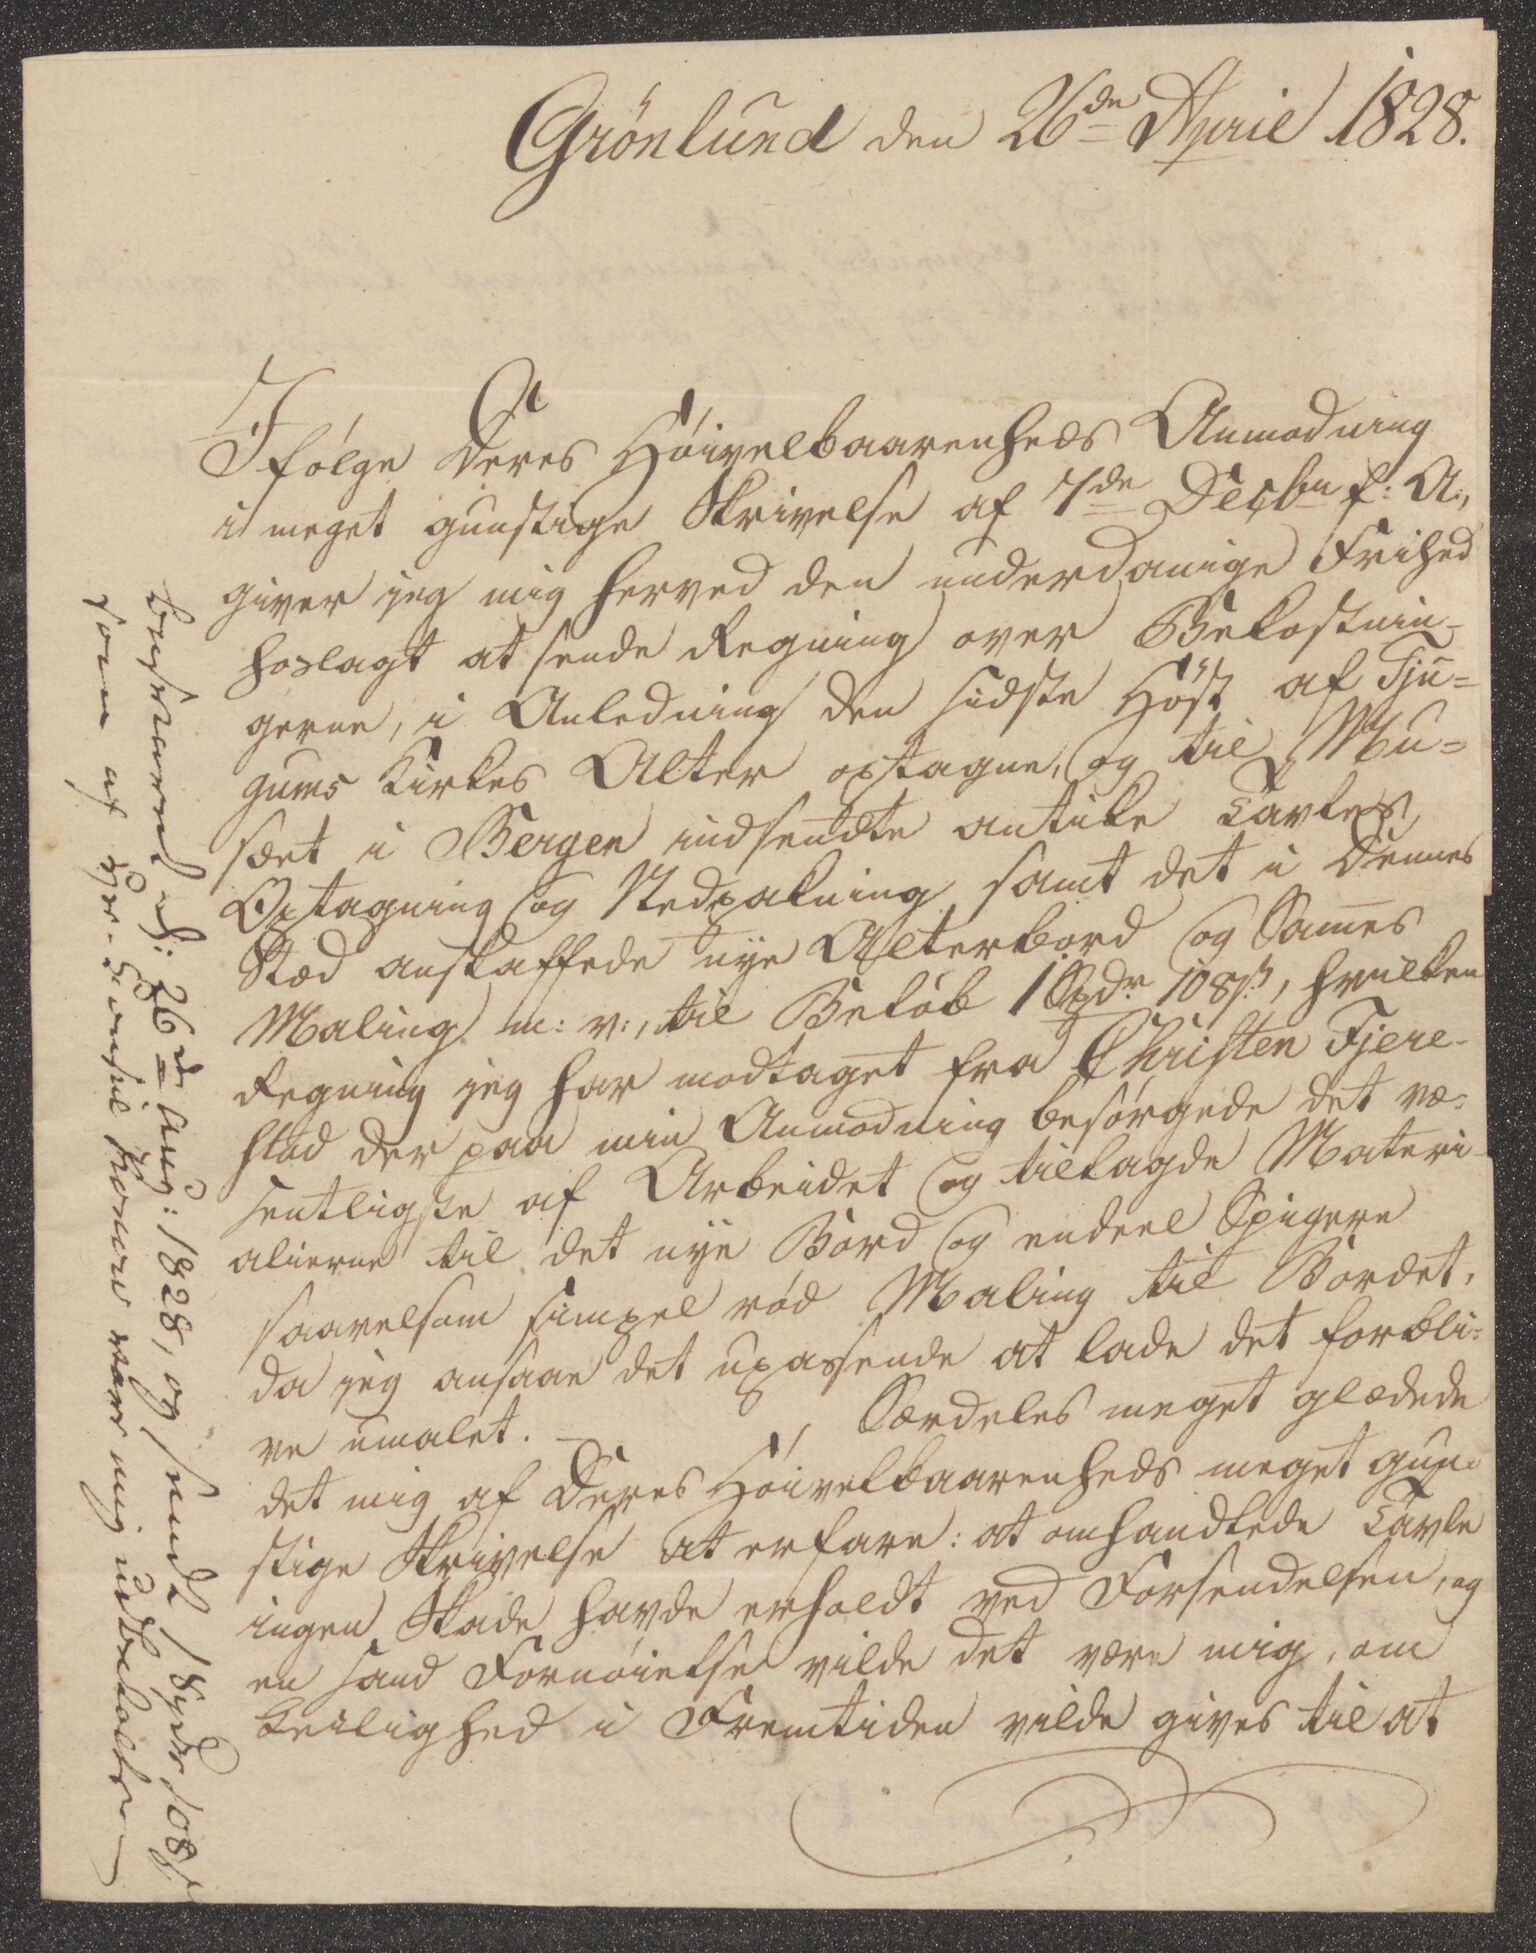 Grönlund den 26de April 1828.
Ifölge Deres Höivelbaarenheds Anmodning
i meget gunstige Skrivelse af 7de Decbr f: A:,
giver jeg mig herved den underdanige Frihed
hoslagt at sende Regning over Bekostnin-
gerne, i Anledning den sidste Höst af Tju-
gums Kirkes Alter optagne, og til Mu-
sæet i Bergen indsendte antike Tavles
Optagning og Nedpakning samt det i Dennes
Stæd anskaffede nye Alterbord og Sammes
Maling m: v:, til Belöb 1 Spdr 108 s, hvilken
Regning jeg har modtaget fra Christen Fjere-
stad der paa min Anmodning besörgede det væ-
sentligste af Arbeidet og tillagde Materi-
alierne til det nye Bord og endeel Spigere
saavelsom simpel röd Maling til Bordet,
da jeg ansaae det upassende at lade det forbli-
ve umalet. — Særdeles meget glædede
det mig af Deres Höivelbaarenheds meget gun-
stige Skrivelse at erfare: at omhandlede Tavle
ingen Skade havde erholdt ved Forsendelsen, og
en sand Fornöielse vilde det være mig, om
Leilighed i Fremtiden vilde gives til at
besvaret d: 26d Aug: 1828, og sendt 1 Spdr 108 s
som af Hr. Consul Konow vare mig udbetalte